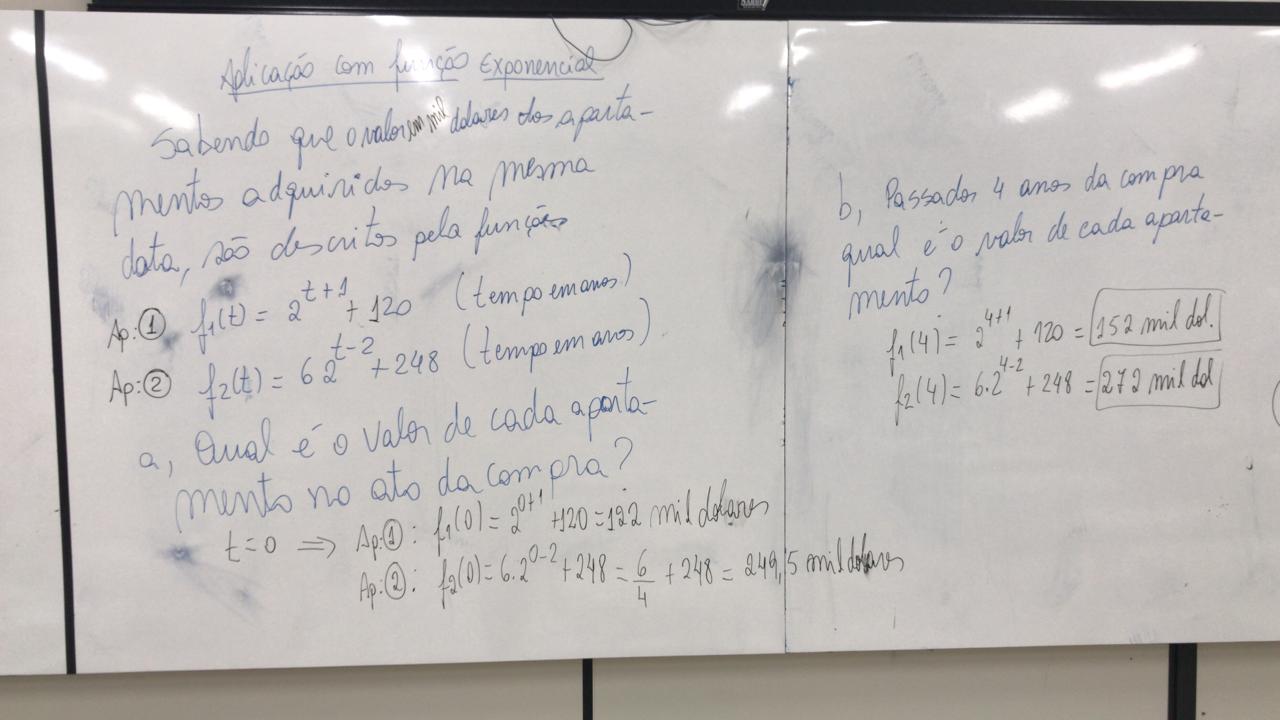 Aplicação com função Exponencial
Sabendo que o valor em mil dolares dos aparta-
mentos adquiridos na mesma
data, são descritos pela funções
Ap:① f₁(t) = 2^{t+1} + 120 (tempo em anos)
Ap:② f₂(t) = 6 2^{t-2} + 248 (tempo em anos)
a, Qual é o valor de cada aparta-
mento no ato da compra?
t=0 ⇒ Ap:①: f₁(0) = 2^{0+1} + 120 = 122 mil dolares
Ap:②: f₂(0) = 6.2^{0-2} + 248 = 6/4 + 248 = 249,5 mil dolares
b, Passados 4 anos da compra
qual é o valor de cada aparta-
mento?
f₁(4) = 2^{4+1} + 120 = 152 mil dol.
f₂(4) = 6.2^{4-2} + 248 = 272 mil dol